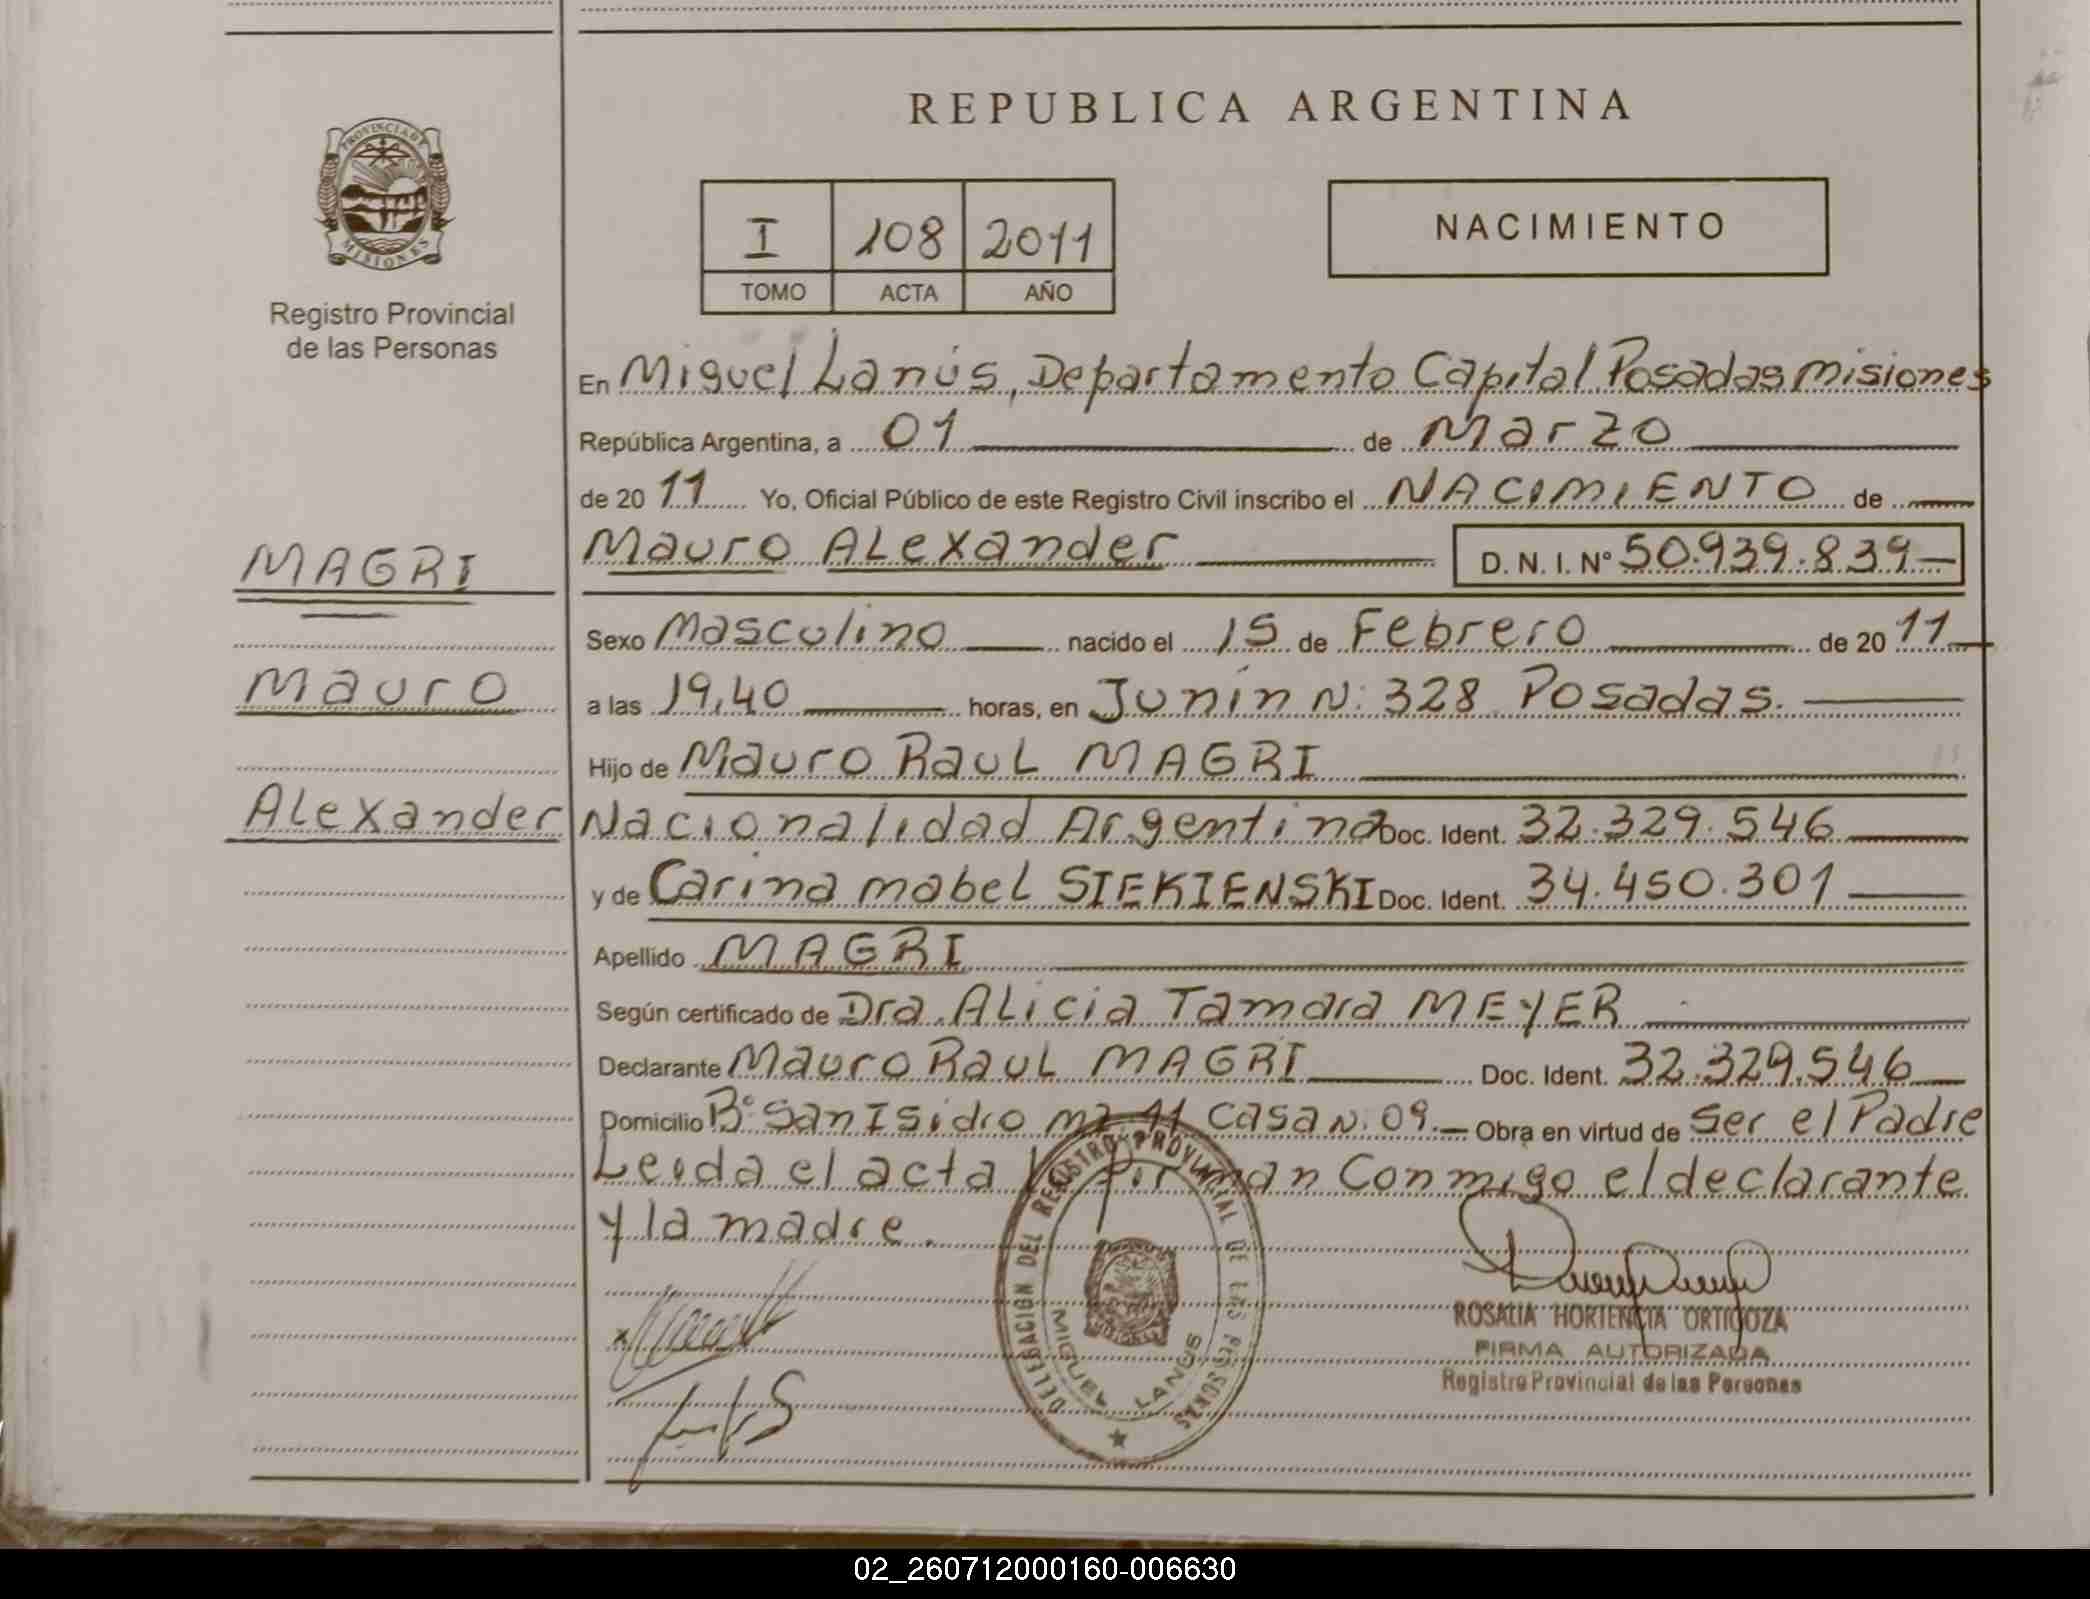 REPUBLICA ARGENTINA
PROVINCIA DE
MISIONES
Registro Provincial
de las Personas
I 108 2011
TOMO ACTA AÑO
NACIMIENTO
En Miguel Lanús, Departamento Capital Posadas Misiones
República Argentina, a 01 de Marzo
de 20 11 Yo, Oficial Público de este Registro Civil inscribo el NACIMIENTO de
MAGRI
Mauro
Alexander
Mauro Alexander D. N. I. Nº 50.939.839
Sexo Masculino nacido el 15 de Febrero de 20 11
a las 19,40 horas, en Junín N: 328 Posadas.
Hijo de Mauro Raul MAGRI
Nacionalidad Argentina Doc. Ident. 32.329.546
y de Carina Mabel SIEKIENSKI Doc. Ident. 34.450.301
Apellido MAGRI
Según certificado de Dra. Alicia Tamara MEYER
Declarante Mauro Raul MAGRI Doc. Ident. 32.329.546
Domicilio Bº San Isidro mz 11 Casa N: 09. Obra en virtud de Ser el Padre
Leida el acta firman Conmigo el declarante
y la madre.
DELEGACION DEL REGISTRO PROVINCIAL DE LAS PERSONAS
MIGUEL LANUS
ROSALIA HORTENCIA ORTIGOZA
FIRMA AUTORIZADA
Registro Provincial de las Personas
02_260712000160-006630